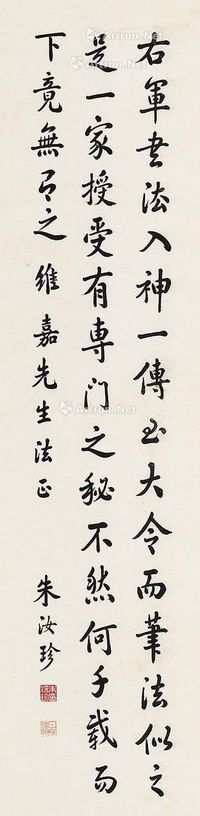 右軍書法入神一傳至大令而筆法似之
是一家授受有專門之秘不然何千載而
下竟無有之 維嘉先生法正
朱汝珍
Artron.Net
Artron.Net
Artron.Net
Artron.Net